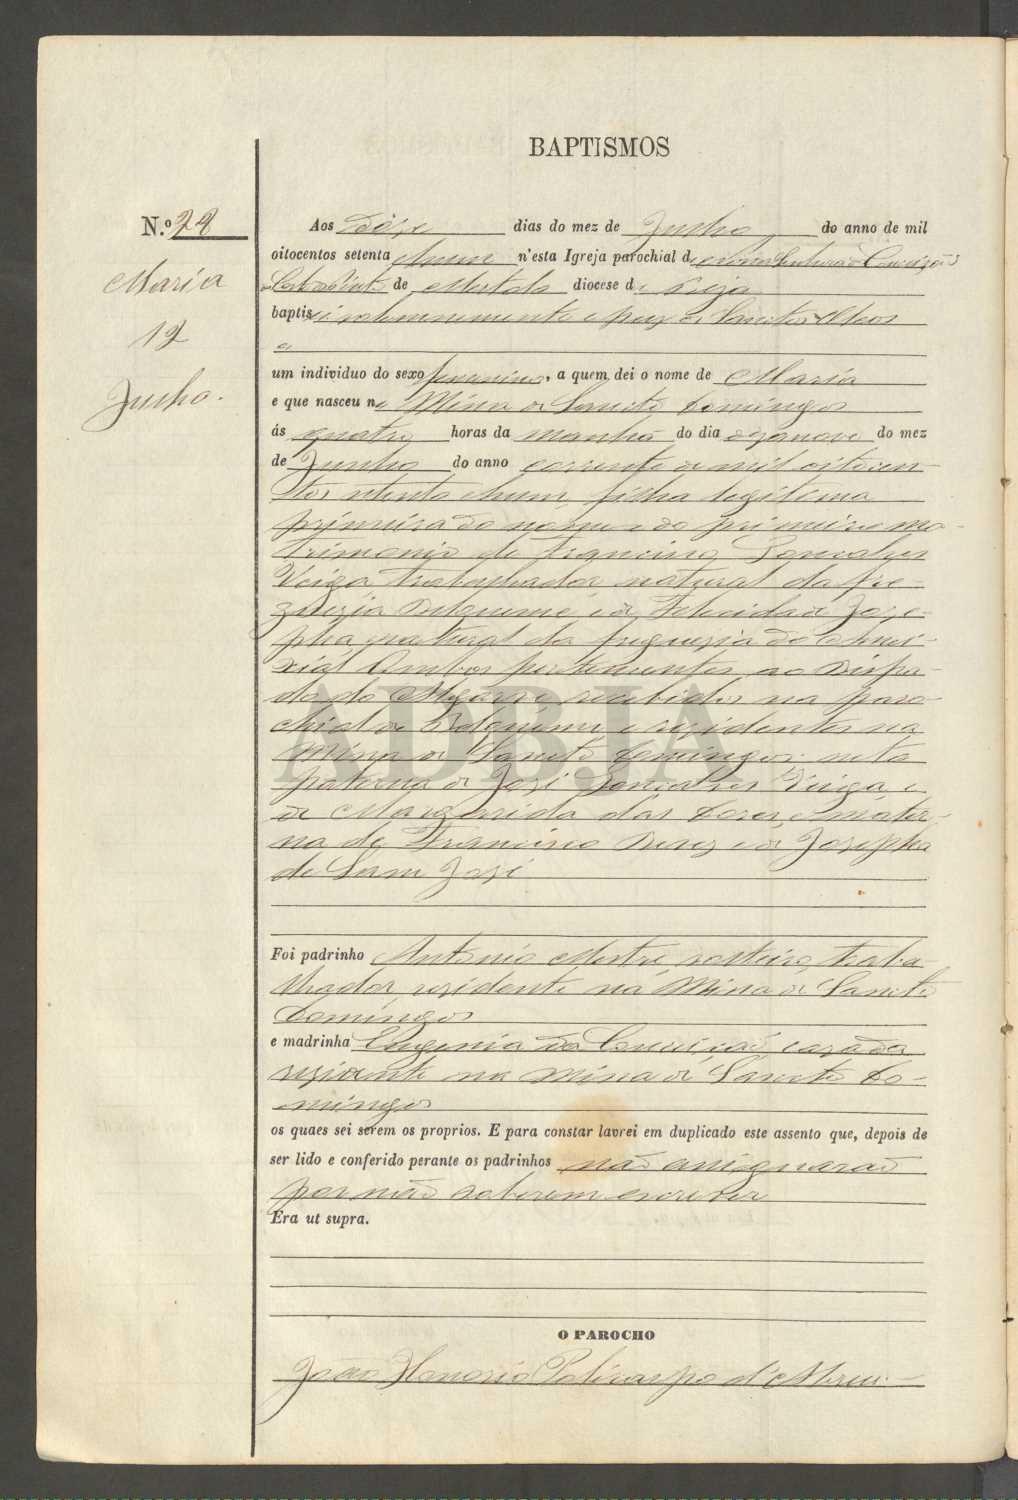 BAPTISMOS
N.º 28
Maria
12
Julho.
Aos Dôze dias do mez de Julho do anno de mil
oitocentos setenta e hum n'esta Igreja parochial de Nossa Senhora da Conceição
de Mertola diocese de Beja
baptisei solemnemente e puz os Sanctos Oleos
a
um individuo do sexo femenino, a quem dei o nome de Maria
e que nasceu na Mina de Sancto Domingos
ás quatro horas da manhã do dia dezanove do mez
de Junho do anno corrente de mil oitocen-
tos setenta e hum, filha legitima
primeira do nome e do primeiro ma-
trimonio de Francisco Gonçalves
Veiga trabalhador natural da fre-
guezia Bolqueime e de Felicidade Joze-
pha natural da freguezia do Amei-
xial Ambos pertencentes ao Bispa-
do do Algarve recebidos na paro-
chial de Bolqueime e rezidentes na
Mina de Sancto Domingos: neta
paterna de Jozé Gonçalves Veiga, e
de Margarida das Dores, e mater-
na de Francisco Braz e de Josepha
de Sam Jozé
Foi padrinho Antonio Mestre solteiro, traba-
lhador, rezidente na Mina de Sancto
Domingos
e madrinha Eugenia da Conceição cazada
rezidente na Mina de Sancto Do-
mingos
os quaes sei serem os proprios. E para constar lavrei em duplicado este assento que, depois de
ser lido e conferido perante os padrinhos não assignarão
por não saberem escrever
Era ut supra.
O PAROCHO
João Honorio Policarpo d'Abreu.
ADBJA